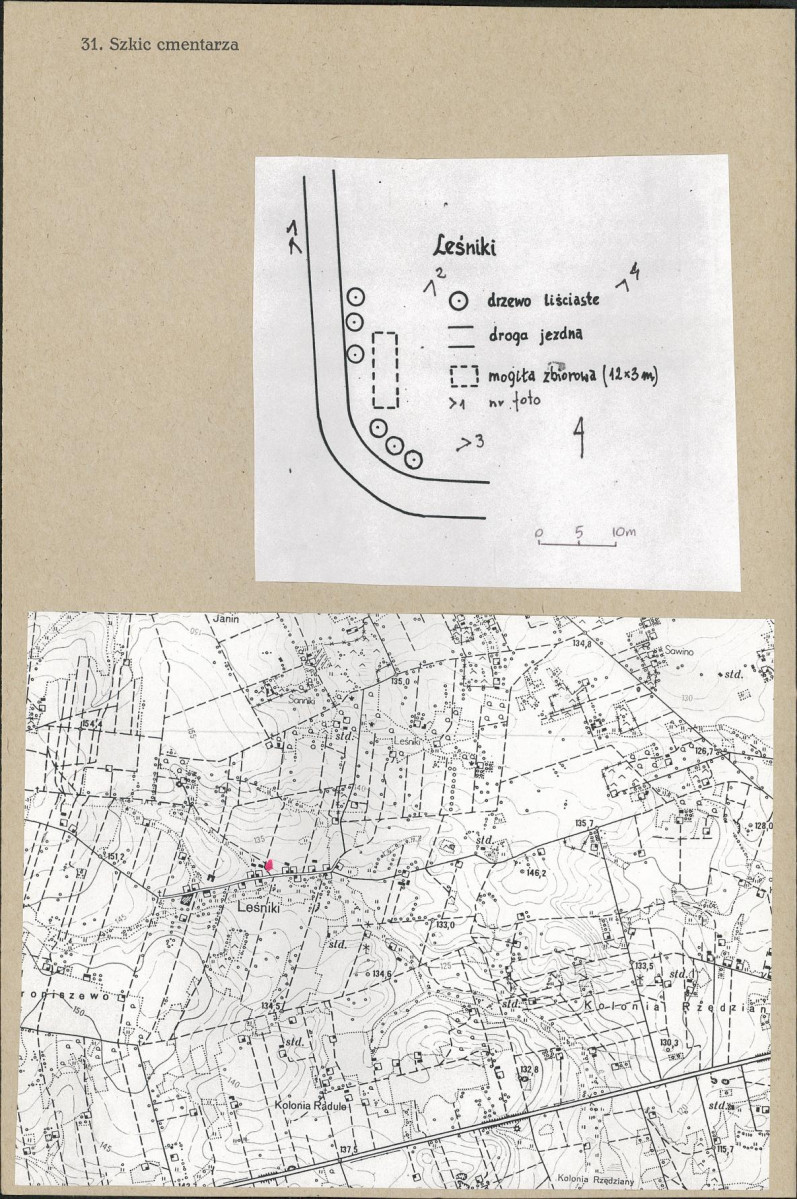 31. Szkic cmentarza
Leśniki
2
4
drzewo liściaste
droga jezdna
mogiła zbiorowa (12×3m)
>1 nr foto
>3
0 5 10m
Janin
134,8
Sawino
std.
150
Sanniki
135,0
130
154,4
155
std.
Leśniki
126,7
140
135
135,7
128,0
151,2
std.
146,2
Leśniki
145
133,0
std.
125
133,5
134,6
std.
roniszewo
150
134,5
std.
Kolonia Rzędzian
std.
130,3
132,8
140
Kolonia Radule
std.
145
137,5
115,7
Kolonia Rzędziany